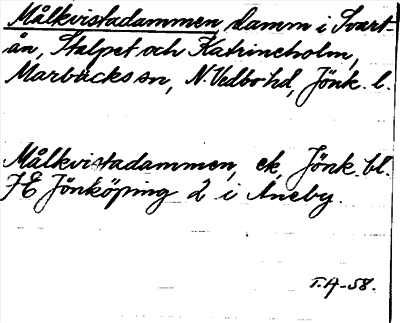 Målkvistadammen, damm i Svart-
ån, Stalpet och Katrineholm,
Marbäcks sn, N. Vedbo hd, Jönk. l.
Målkvistadammen, ek, Jönk. bl.
7E Jönköping 2 i Aneby.
T.H-58.